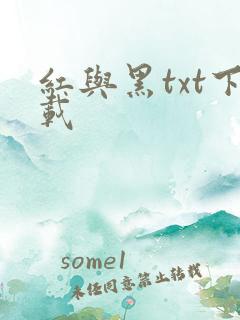 紅與黑txt下
載
some1
未經同意禁止轉載